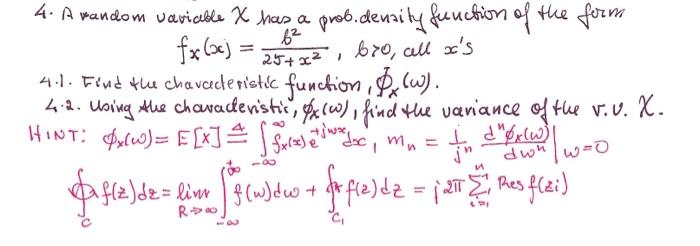 4. A random variable X has a prob. density function of the form
fx(x) = b² / (25 + x²) , b>0, all x's
4.1. Find the characteristic function, Φx(ω).
4.2. Using the characteristic, φx(ω), find the variance of the r.v. X.
HINT: φx(ω) = E[X] ≜ ∫_{-∞}^{∞} fx(x) e^{+jωx} dx , mn = j/jⁿ dⁿφx(ω)/dωⁿ | ω=0
∮_C f(z)dz = lim_{R→∞} ∫_{-∞}^{+∞} f(ω)dω + ∮_{C₁} f(z)dz = j2π Σ_{i=1}^{n} Res f(zi)